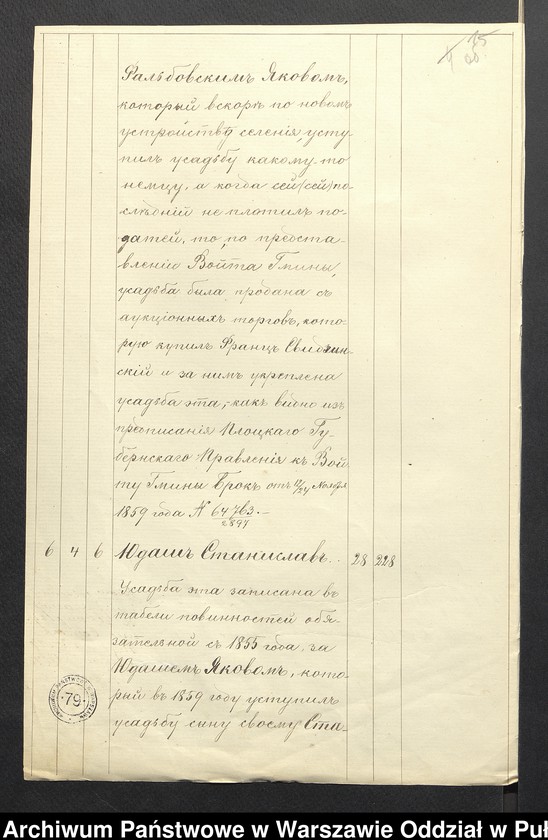 15
об.
Фальбовскимъ Яковомъ,
который вскорѣ по новомъ
устройству селенія, усту-
пилъ усадьбу какому-то
немцу, а когда сей (сей) по-
слѣдній не платилъ по-
датей, то, по предста-
вленію Войта Гмины,
усадьба была продана съ
аукціонныхъ торговъ, кото-
рую купилъ Францъ Свидзин-
скій и за нимъ укреплена
усадьба эта, какъ видно изъ
предписанія Плоцкаго Гу-
бернскаго Правленія къ Вой
ту Гмины Брокъ отъ 12/24 Ноября
1859 года N 64763/2897.—
6 4 6 Юдашъ Станиславъ.. 28 228
Усадьба эта записана въ
табели повинностей обя-
зательной съ 1855 года, за
Юдашемъ Яковомъ, кото-
рый въ 1859 году уступилъ
усадьбу сыну своему Ста-
79
Archiwum Państwowe w Warszawie Oddział w Puł